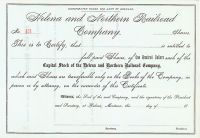 INCORPORATED UNDER THE LAWS OF MONTANA
Helena and Northern Railroad
Company.
No. Shares
This is to Certify, that is entitled to
full paid Shares, of One Hundred Dollars each of the
Capital Stock of the Helena and Northern Railroad Company,
which said Shares are transferable only on the Books of the Company, in
person or by attorney, on the surrender of this Certificate.
Witness, the Seal of the said Company, and the signatures of the President
and Secretary, at Helena, Montana, this day of 18
Secretary. President.